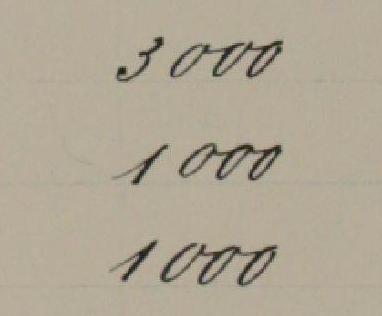 3000
1000
1000